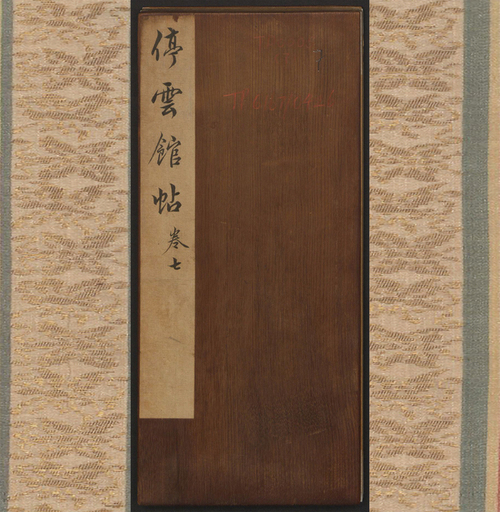 停雲館帖
卷七